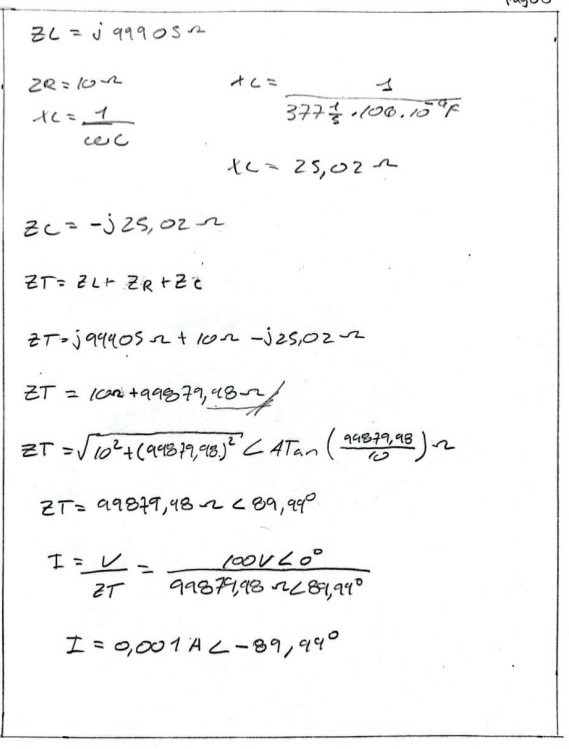 ZL = j 99905 Ω
ZR = 10 Ω
XC = 1 / (377 1/s · 106 · 10⁻⁹ F)
XC = 1 / ωC
XC = 25,02 Ω
ZC = -j25,02 Ω
ZT = ZL + ZR + ZC
ZT = j99905 Ω + 10 Ω - j25,02 Ω
ZT = 10 Ω + 99879,98 Ω
ZT = √(10² + (99879,98)²) ∠ ATan (99879,98 / 10) Ω
ZT = 99879,98 Ω ∠ 89,99°
I = V / ZT = 100V∠0° / 99879,98 Ω∠89,99°
I = 0,001 A ∠ -89,99°